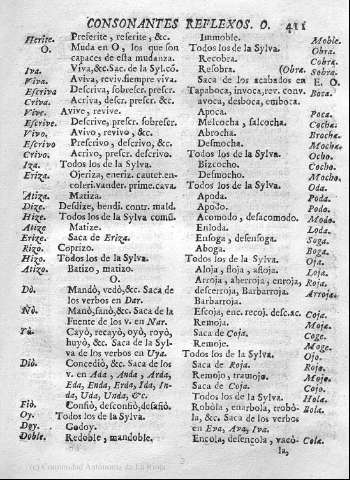 CONSONANTES REFLEXOS. O. 411
Herite. Preferite, referite, &c.
O. Muda en O, los que son
capaces de esta mudanza.
Iva. Viva,&c.Sac. de la Syl.có.
Viva. Aviva, reviv.siempre viva.
Escriva Descriva, sobrescr. prescr.
Criva. Acriva, descr. prescr. &c.
Vive. Avive, revive.
Escrive. Descrive, prescr. sobrescr.
Vivo. Avivo, revivo, &c.
Escrivo Prescrivo, descrivo, &c.
Crivo. Acrivo, prescr. descrivo.
Iza. Todos los de la Sylva.
Eriza. Ojeriza, eneriz. cauter.en-
coleri.vander. prime.cava.
Atiza. Matiza.
Dize. Desdize, bendi. contr. mald.
Hize. Todos los de la Sylva comũ.
Atize Matize.
Erize. Saca de Eriza.
Rizo. Coprizo.
Hizo. Todos los de la Sylva.
Atizo. Batizo, matizo.
O.
Dò. Mandò, vedò,&c. Saca de
los verbos en Dar.
Ñò. Mañò,sañò,&c. Saca de la
Fuente de los v. en Nar.
Yò. Cayò, recayò, oyò, royò,
huyò, &c. Saca de la Syl-
va de los verbos en Uya.
Diò. Concediò, &c. Saca de los
v. en Ada, Anda, Arda,
Eda, Enda, Erda, Ida, In-
da, Uda, Unda, &c.
Fiò. Confiò, desconfiò,desafiò.
Oy. Todos los de la Sylva.
Doy. Godoy.
Doble. Redoble, mandoble.
Immoble. Moble.
Todos los de la Sylva. Obra.
Recobra. Cobra.
Resobra. (Obra. Sobra.
Saca de los acabados en E. O.
Tapaboca, invoca,rev. conv. Boca.
avoca, desboca, emboca.
Apoca. Poca.
Melcocha, salcocha. Cocha.
Abrocha. Brocha.
Desmocha. Mocha.
Todos los de la Sylva. Ocho.
Bizcocho. Cocho.
Desmocho. Mocho.
Todos los de la Sylva. Oda.
Apoda. Poda.
Apodo. Podo.
Acomodo, desacomodo. Modo.
Enloda. Loda.
Ensoga, desensoga. Soga.
Aboga. Boga.
Todos los de la Sylva. Oja.
Aloja, floja, afloja. Loja.
Arroja, aherroja, enroja, Roja.
descerroja, Barbarroja. Arroja.
Barbarroja.
Escoja, enc. recoj. desc.ac. Coja.
Remoja. Moja.
Saca de Coja. Coge.
Remoje. Moge.
Todos los de la Sylva. Ojo.
Saca de Roja. Rojo.
Remojo, tramojo. Mojo.
Saca de Coja. Cojo.
Todos los de la Sylva. Hola.
Robòla, enarbola, trobò- Bola.
la, &c. Saca de los verbos
en Eva, Ava, Iva.
Encola, desencola, vacò- Cola.
la,
(c) Comunidad Autónoma de La Rioja